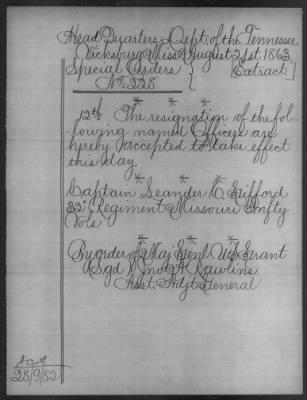 Head Quarters Dept. of the Tennessee
Vicksburg Miss August 21st 1863
Special Orders } { Extract. }
No. 228
* * *
12th The resignation of the fol-
lowing named Officers are
hereby accepted to take effect
this day.
* * *
Captain Leander C. Gifford
32d Regiment Missouri Infty
Vols
* * *
By order of Maj Genl U.S. Grant
Sgd Jno. A Rawlins
Asst. Adjt General
28/9/82